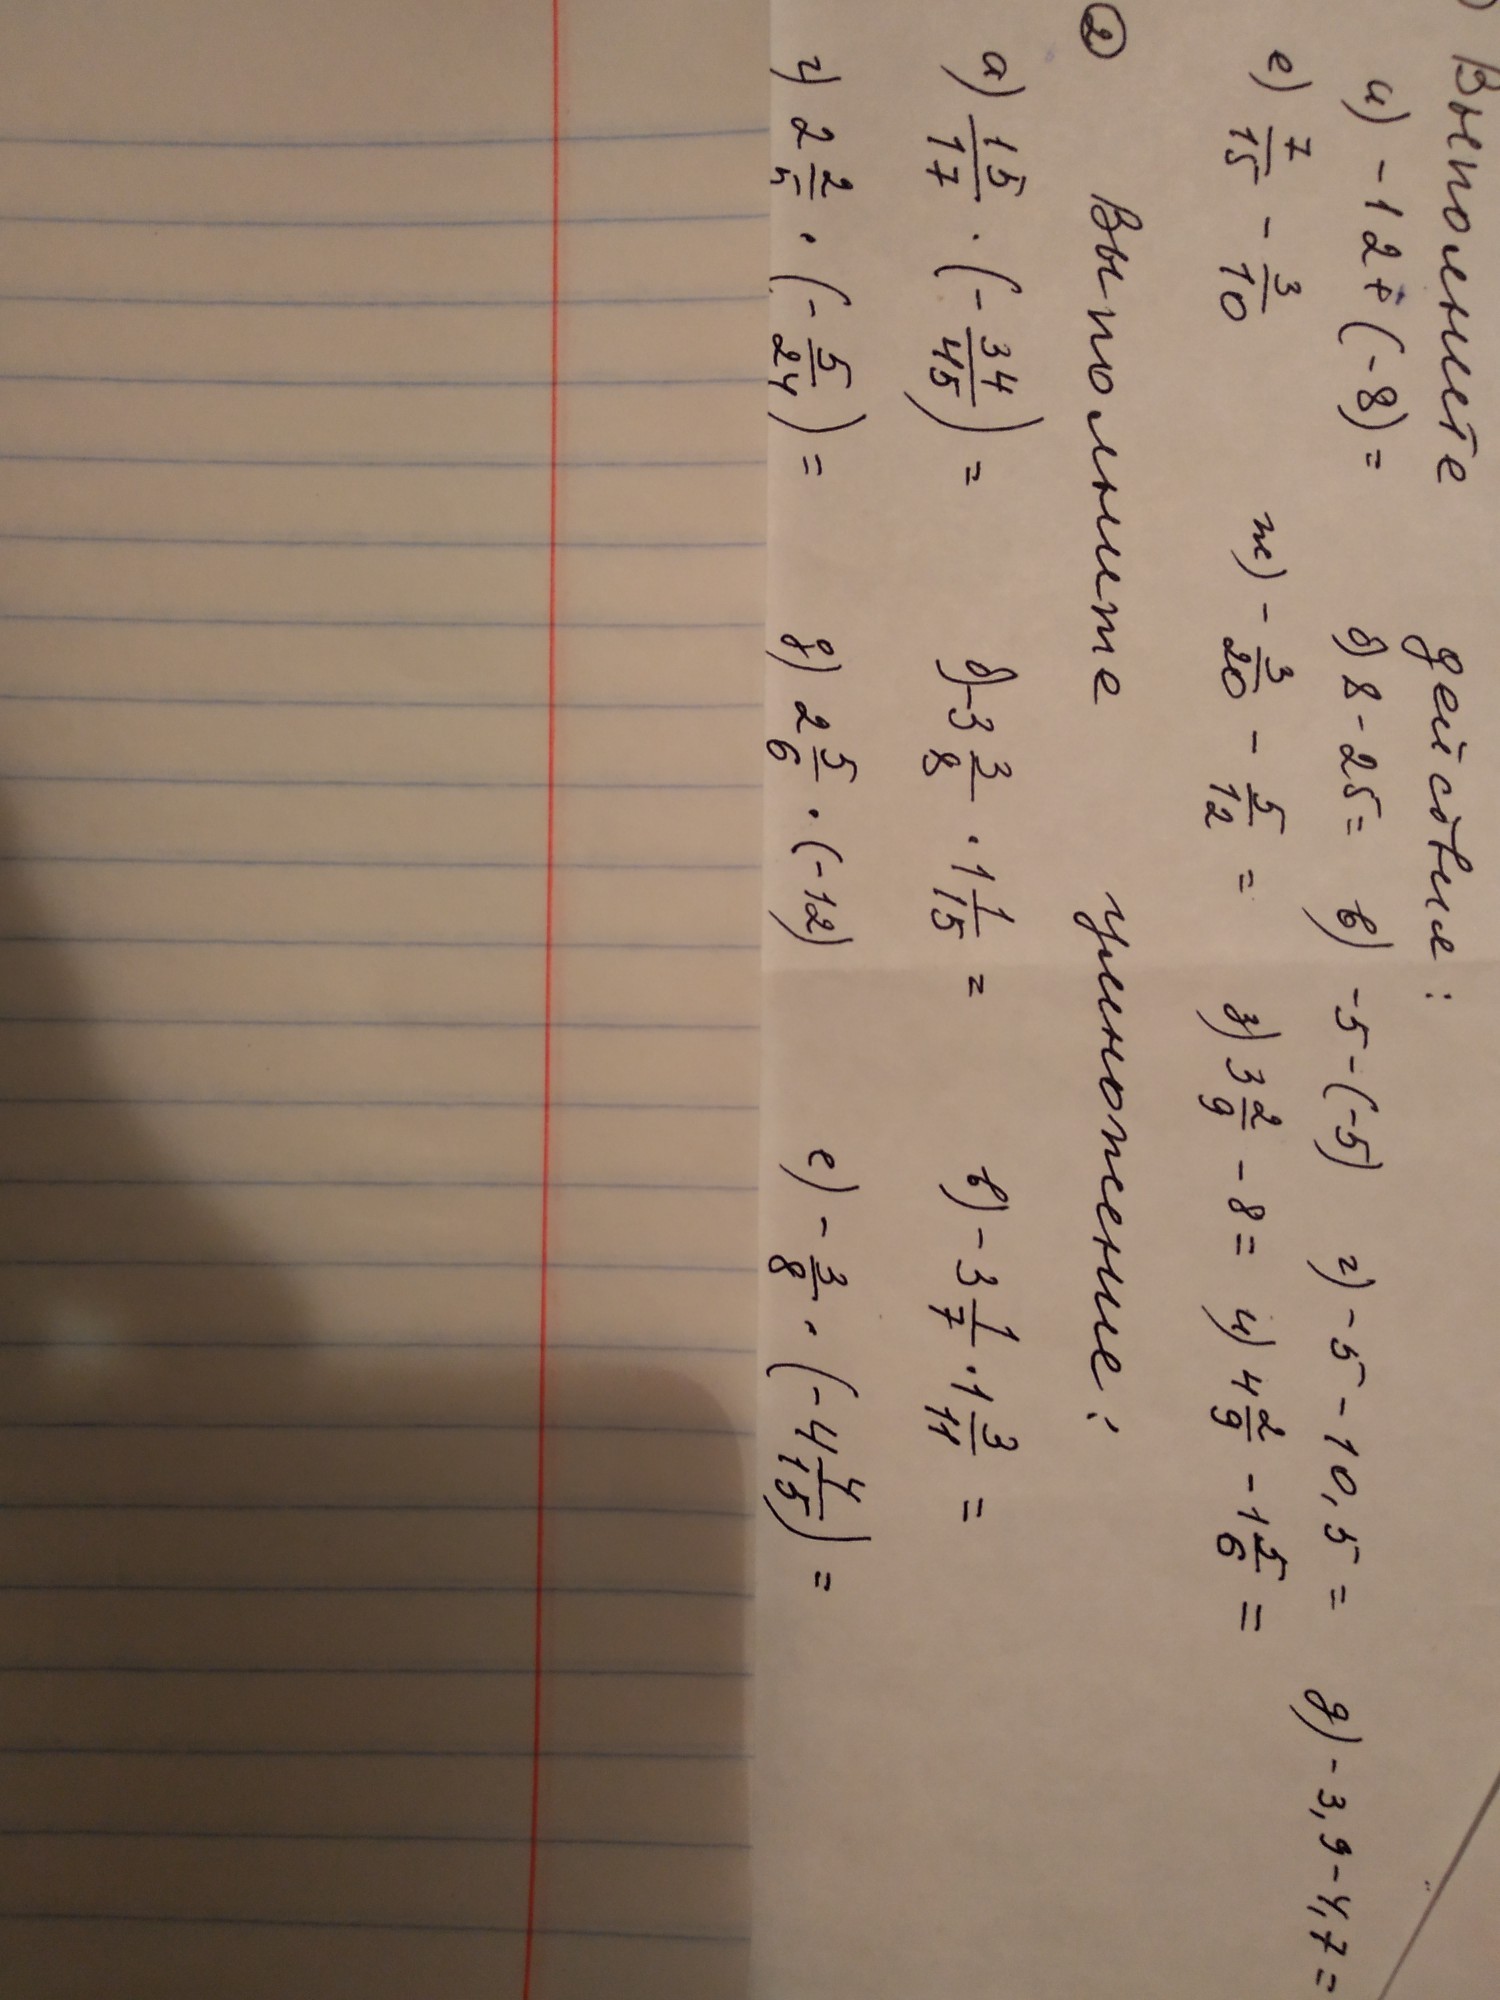 ) Выполните действия:
а) -12+(-8)= б) 8-25= в) -5-(-5) г) -5-10,5= д) -3,9-4,7=
е) 7/15 - 3/10 ж) -3/20 - 5/12 = з) 3 2/9 - 8= и) 4 2/9 - 1 5/6 =
② Выполните умножение:
а) 15/17 · (-34/45) = б) -3 3/8 · 1 1/15 = в) -3 1/7 · 1 3/11 =
г) 2 2/5 · (-5/24) = д) 2 5/6 · (-12) е) -3/8 · (-4 4/15) =